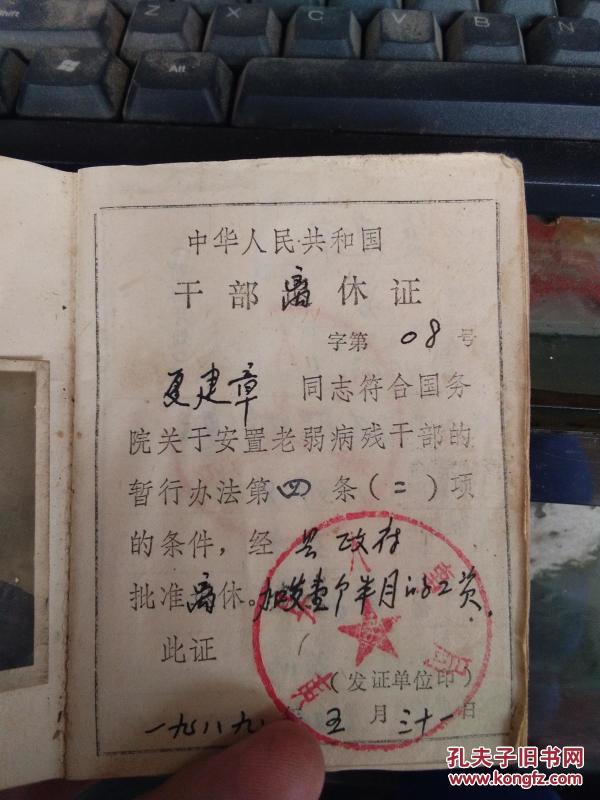 Alt
中华人民共和国
干部离休证
字第 08 号
夏建章 同志符合国务
院关于安置老弱病残干部的
暂行办法第四条(二)项
的条件，经 县政府
批准离休。加发壹个半月的工资.
此证
(发证单位印)
一九八九年五月三十一日
孔夫子旧书网
www.kongfz.com